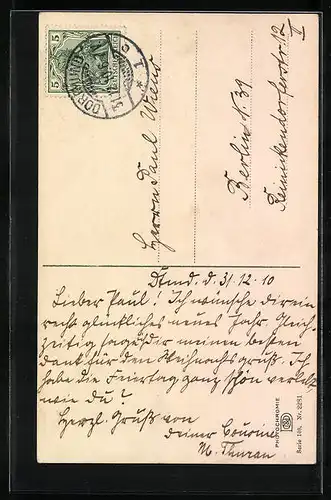 5
5
DORTMUND
Herrn Paul
Berlin N. 39
Reinickendorferstr. 12
I
Dtmd. d. 31.12.10
Lieber Paul! Ich wünsche dir ein
recht glückliches neues Jahr. Gleich-
zeitig sage dir meinen besten
Dank für den Weihnachsgruß. Ich
habe die Feiertag ganz schön verlebt
wie du?
Herzl. Gruß von
deiner Cousine
M.
PHOTOCHROMIE
Serie 108, Nr. 2281